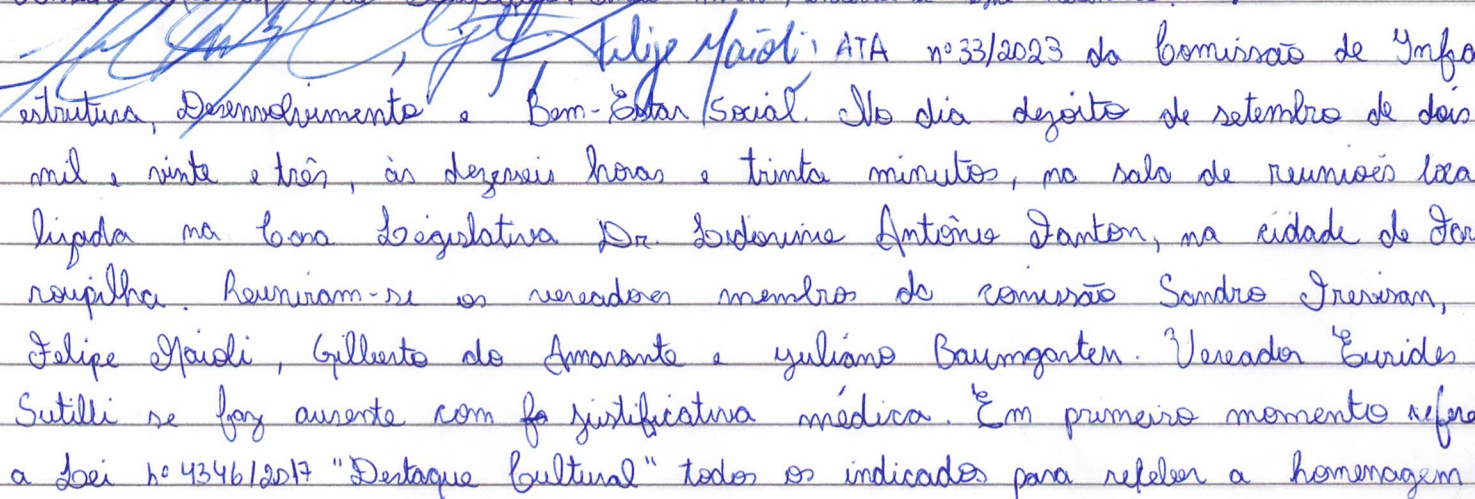 Felipe Maioli; ATA nº 33/2023 da Comissão de Infra
estrutura, Desenvolvimento e Bem-Estar Social. No dia dezoito de setembro de dois
mil e vinte e três, às dezesseis horas e trinta minutos, na sala de reuniões loca
lizada na Casa Legislativa Dr. Lidovino Antônio Fanton, na cidade de Far
roupilha. Reuniram-se os vereadores membros da comissão Sandro Trevisan,
Felipe Maioli, Gilberto do Amarante e Juliano Baumgarten. Vereador Eurides
Sutilli se faz ausente com justificativa médica. Em primeiro momento refere
a Lei nº 4346/2017 "Destaque Cultural" todos os indicados para receber a homenagem